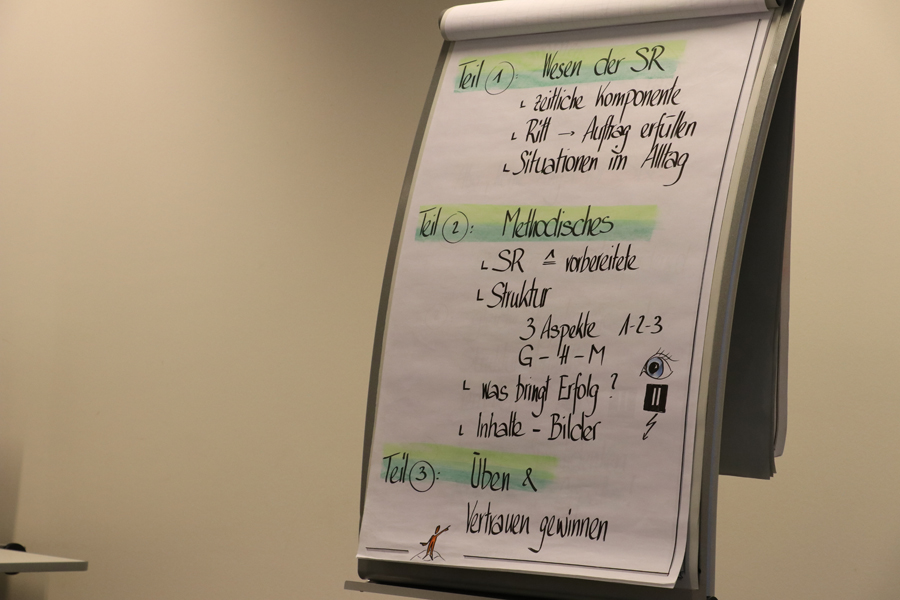 Teil 1: Wesen der SR
zeitliche Komponente
Ritt → Auftrag erfüllen
Situationen im Alltag
Teil 2: Methodisches
SR ≙ vorbereitete
Struktur
3 Aspekte 1-2-3
G - H - M
was bringt Erfolg?
Inhalte - Bilder
Teil 3: Üben &
Vertrauen gewinnen